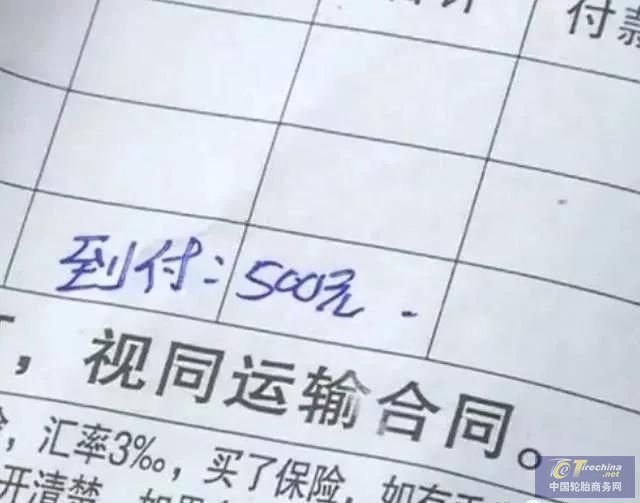 付款
到付：500元.
，视同运输合同。
，汇率3‰，买了保险，如有
开清楚
Tirechina.net
中国轮胎商务网